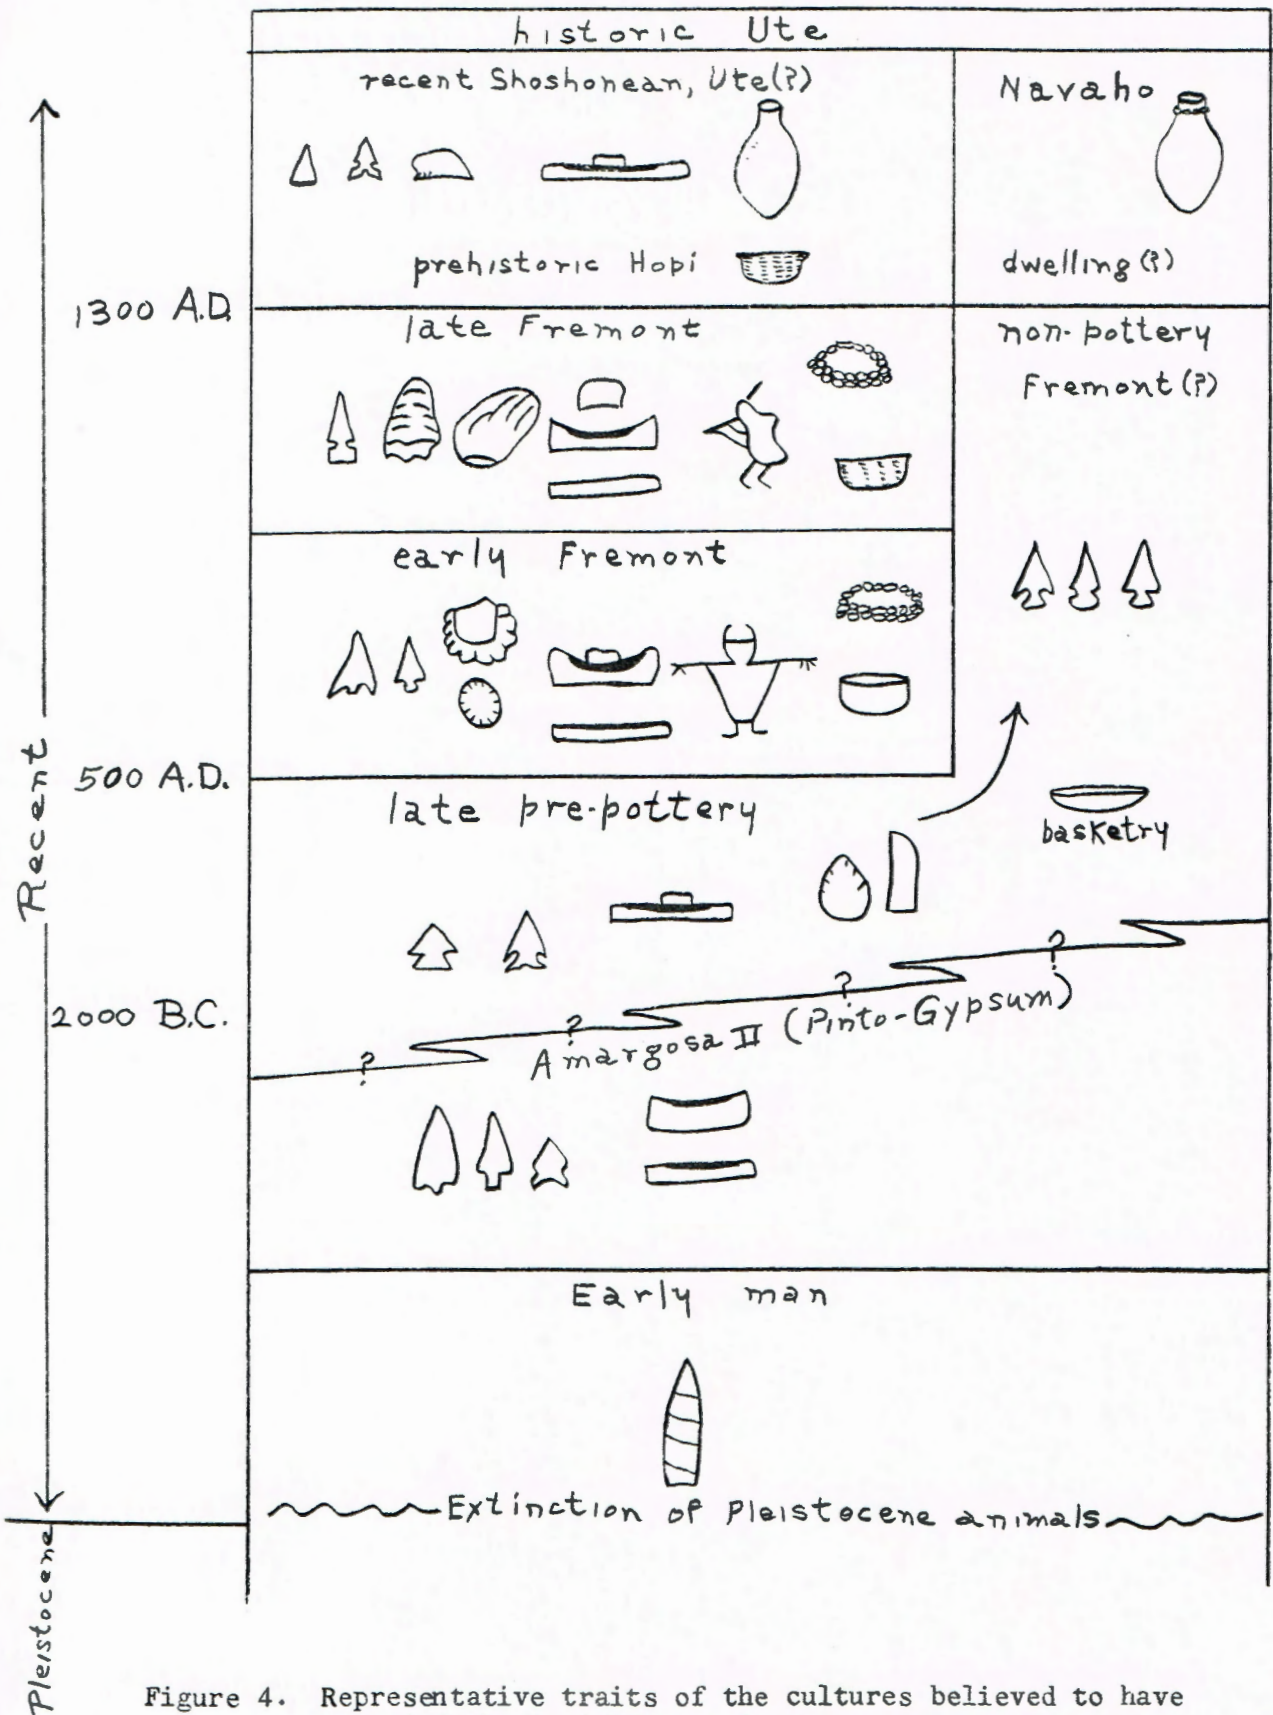 historic Ute
recent Shoshonean, Ute(?)
Navaho
prehistoric Hopi
dwelling (?)
1300 A.D.
late Fremont
non-pottery
Fremont (?)
early Fremont
500 A.D.
late pre-pottery
basketry
Recent
?
?
?
?
2000 B.C.
Amargosa II (Pinto-Gypsum)
Early man
Extinction of Pleistocene animals
Pleistocene
Figure 4. Representative traits of the cultures believed to have